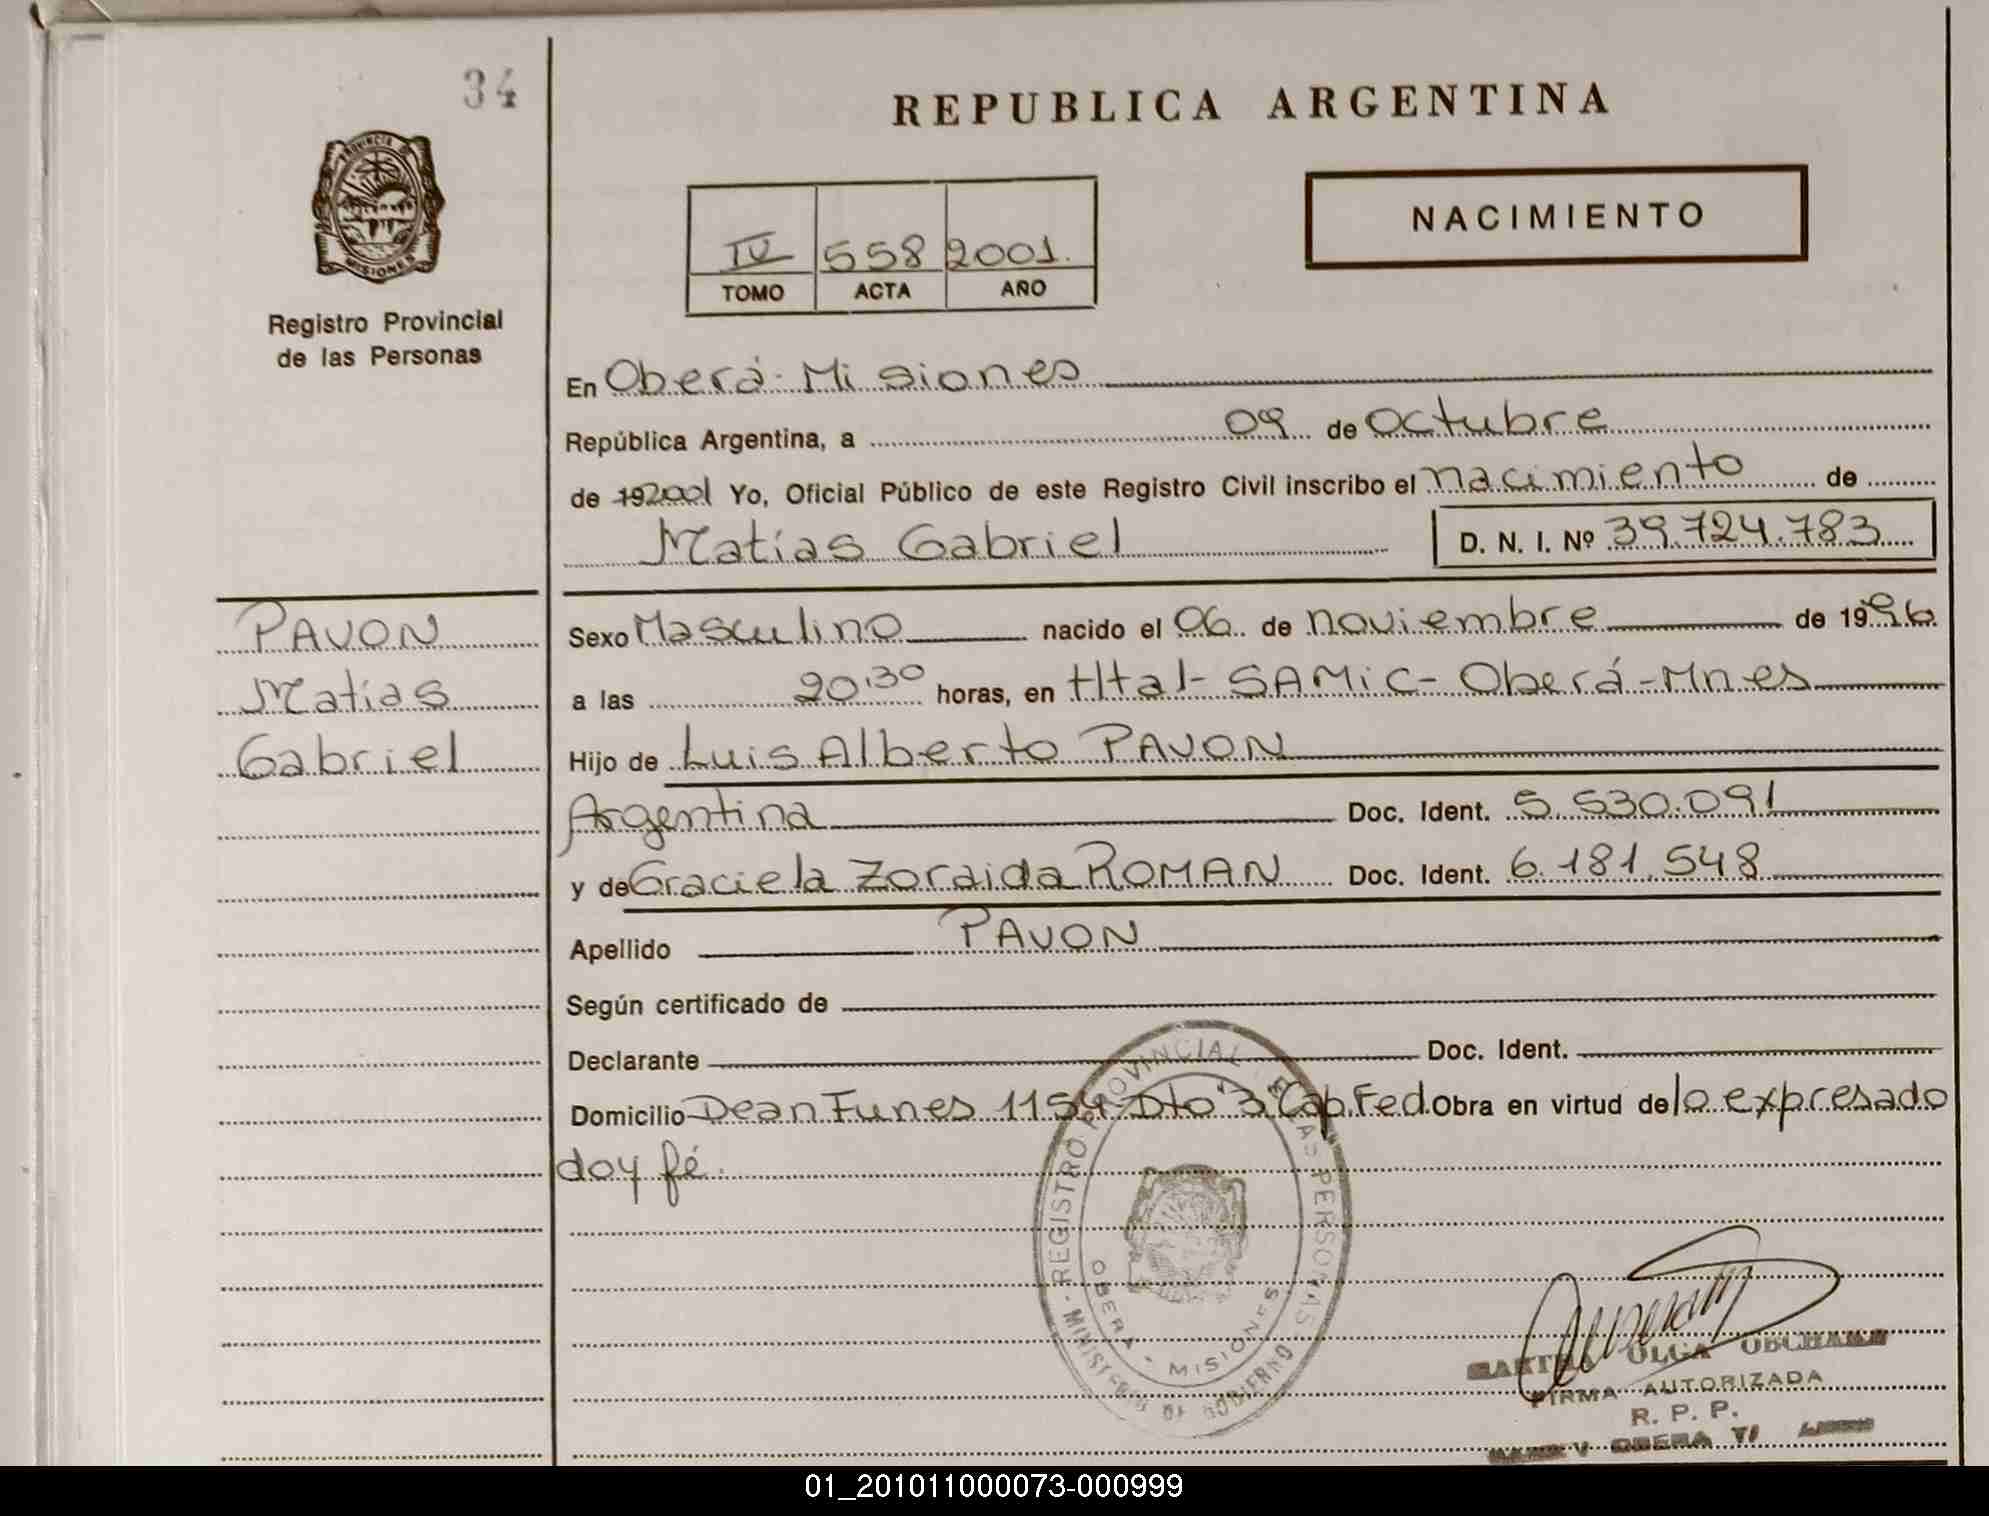 34
PROVINCIA DE
MISIONES
Registro Provincial
de las Personas
REPUBLICA ARGENTINA
NACIMIENTO
IV 558 2001.
TOMO ACTA AÑO
En Oberá - Misiones
República Argentina, a 09 de Octubre
de 192001 Yo, Oficial Público de este Registro Civil inscribo el nacimiento de
Matías Gabriel D. N. I. Nº 39.724.783
PAVON
Matías
Gabriel
Sexo Masculino nacido el 06 de noviembre de 1996.
a las 20:30 horas, en Htal- SAMiC- Oberá-Mnes
Hijo de Luis Alberto PAVON
Argentina Doc. Ident. 5.530.091
y de Graciela Zoraida ROMAN Doc. Ident. 6.181.548
Apellido PAVON
Según certificado de
Declarante Doc. Ident.
Domicilio Dean Funes 1154 Dto "3" Cap.Fed. Obra en virtud de lo expresado
doy fé.
REGISTRO PROVINCIAL DE LAS PERSONAS
MINISTERIO DE GOBIERNO
OBERA - MISIONES
OLGA
FIRMA AUTORIZADA
R. P. P.
OBERA
01_201011000073-000999